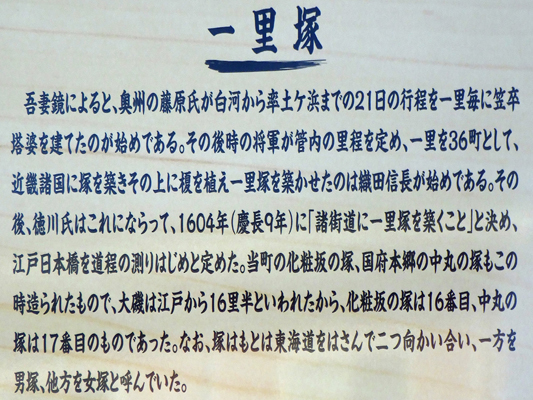 一里塚
吾妻鏡によると、奥州の藤原氏が白河から率土ケ浜までの21日の行程を一里毎に笠卒
塔姿を建てたのが始めである。その後時の将軍が管内の里程を定め、一里を36町として、
近畿諸国に塚を築きその上に榎を植え一里塚を築かせたのは織田信長が始めである。その
後、徳川氏はこれにならって、1604年(慶長9年)に「諸街道に一里塚を築くこと」と決め、
江戸日本橋を道程の測りはじめと定めた。当町の化粧坂の塚、国府本郷の中丸の塚もこの
時造られたもので、大磯は江戸から16里半といわれたから、化粧坂の塚は16番目、中丸の
塚は17番目のものであった。なお、塚はもとは東海道をはさんで二つ向かい合い、一方を
男塚、他方を女塚と呼んでいた。